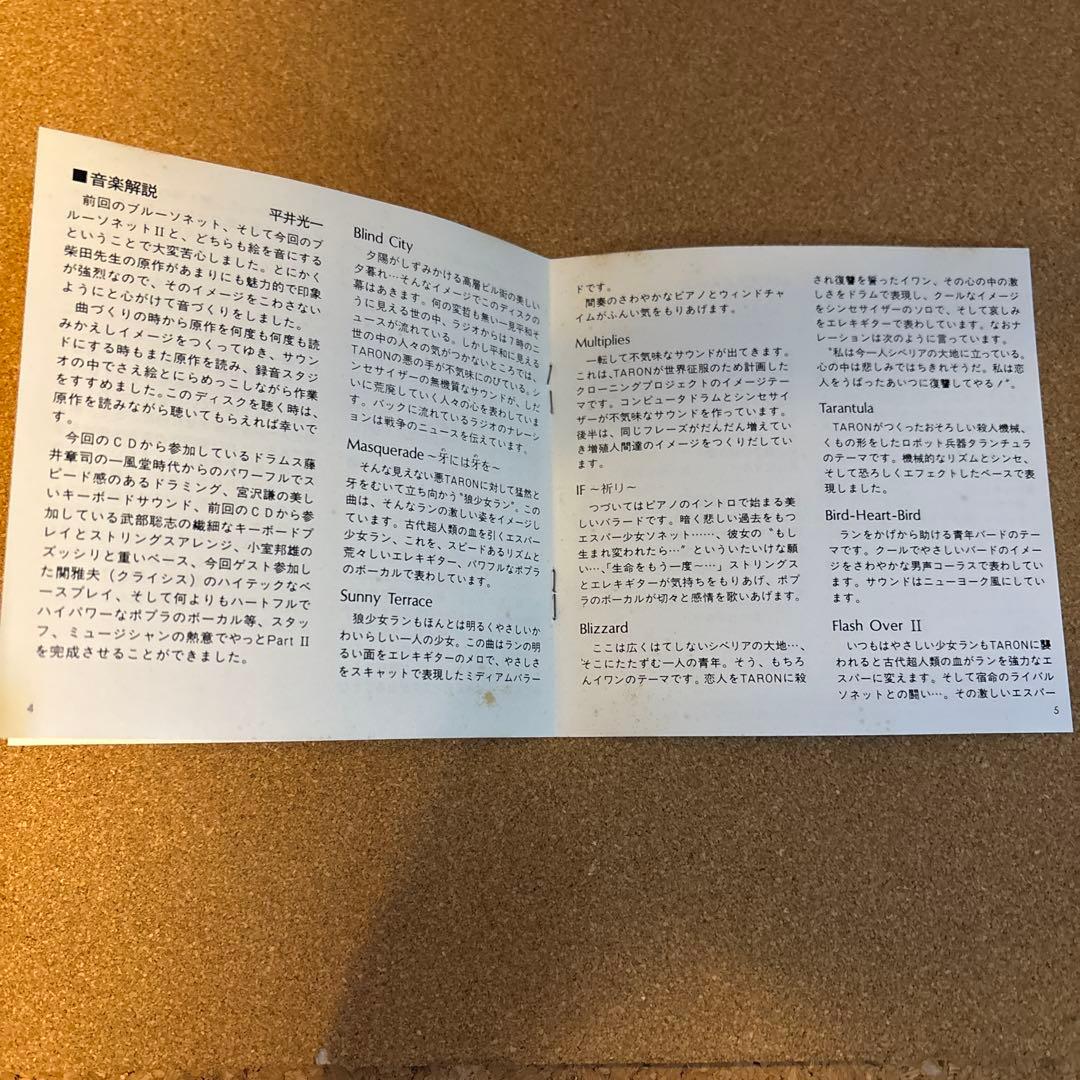 ■音楽解説
平井光一
前回のブルーソネット、そして今回のブ
ルーソネットⅡと、どちらも絵を音にする
ということで大変苦心しました。とにかく
柴田先生の原作があまりにも魅力的で印象
が強烈なので、そのイメージをこわさない
ようにと心がけて音づくりをしました。
曲づくりの時から原作を何度も何度も読
みかえしイメージをつくってゆき、サウン
ドにする時もまた原作を読み、録音スタジ
オの中でさえ絵とにらめっこしながら作業
をすすめました。このディスクを聴く時は、
原作を読みながら聴いてもらえれば幸いで
す。
今回のCDから参加しているドラムス藤
井章司の一風堂時代からのパワーフルでス
ピード感のあるドラミング、宮沢謙の美し
いキーボードサウンド、前回のCDから参
加している武部聡志の繊細なキーボードプ
レイとストリングスアレンジ、小室邦雄の
ズッシリと重いベース、今回ゲスト参加し
た関雅夫（クライシス）のハイテックなベ
ースプレイ、そして何よりもハートフルで
ハイパワーなポプラのボーカル等、スタッ
フ、ミュージシャンの熱意でやっとPart Ⅱ
を完成させることができました。
4
Blind City
夕陽がしずみかける高層ビル街の美しい
夕暮れ…そんなイメージでこのディスクの
幕はあきます。何の変哲も無い一見平和そ
うに見える世の中、ラジオからは7時のニ
ュースが流れている。しかし平和に見える
世の中の人々の気がつかないところでは、
TARONの悪の手が不気味にのびている。シ
ンセサイザーの無機質なサウンドが、しだ
いに荒廃していく人々の心を表わしていま
す。バックに流れているラジオのナレーシ
ョンは戦争のニュースを伝えています。
Masquerade～牙には牙を～
そんな見えない悪TARONに対して猛然と
牙をむいて立ち向かう“狼少女ラン”。この
曲は、そんなランの激しい姿をイメージし
ています。古代超人類の血を引くエスパー
少女ラン、これを、スピードあるリズムと
荒々しいエレキギター、パワフルなポプラ
のボーカルで表わしています。
Sunny Terrace
狼少女ランもほんとは明るくやさしいか
わいらしい一人の少女。この曲はランの明
るい面をエレキギターのメロで、やさしさ
をスキャットで表現したミディアムバラー
ドです。
間奏のさわやかなピアノとウィンドチャ
イムがふんい気をもりあげます。
Multiplies
一転して不気味なサウンドが出てきます。
これは、TARONが世界征服のため計画した
クローニングプロジェクトのイメージテー
マです。コンピュータドラムとシンセサイ
ザーが不気味なサウンドを作っています。
後半は、同じフレーズがだんだん増えてい
き増殖人間達のイメージをつくりだしてい
ます。
IF～祈り～
つづいてはピアノのイントロで始まる美
しいバラードです。暗く悲しい過去をもつ
エスパー少女ソネット……、彼女の“もし
生まれ変われたら…”といういたいけな願
い…、「生命をもう一度～…」ストリングス
とエレキギターが気持ちをもりあげ、ポプ
ラのボーカルが切々と感情を歌いあげます。
Blizzard
ここは広くはてしないシベリアの大地…、
そこにたたずむ一人の青年。そう、もちろ
んイワンのテーマです。恋人をTARONに殺
され復讐を誓ったイワン、その心の中の激
しさをドラムで表現し、クールなイメージ
をシンセサイザーのソロで、そして哀しみ
をエレキギターで表わしています。なおナ
レーションは次のように言っています。
“私は今一人シベリアの大地に立っている。
心の中は悲しみではちきれそうだ。私は恋
人をうばったあいつに復讐してやる！”。
Tarantula
TARONがつくったおそろしい殺人機械、
くもの形をしたロボット兵器タランチュラ
のテーマです。機械的なリズムとシンセ、
そして恐ろしくエフェクトしたベースで表
現しました。
Bird-Heart-Bird
ランをかげから助ける青年バードのテー
マです。クールでやさしいバードのイメー
ジをさわやかな男声コーラスで表わしてい
ます。サウンドはニューヨーク風にしてい
ます。
Flash Over Ⅱ
いつもはやさしい少女ランもTARONに襲
われると古代超人類の血がランを強力なエ
スパーに変えます。そして宿命のライバル
ソネットとの闘い…。その激しいエスパー
5